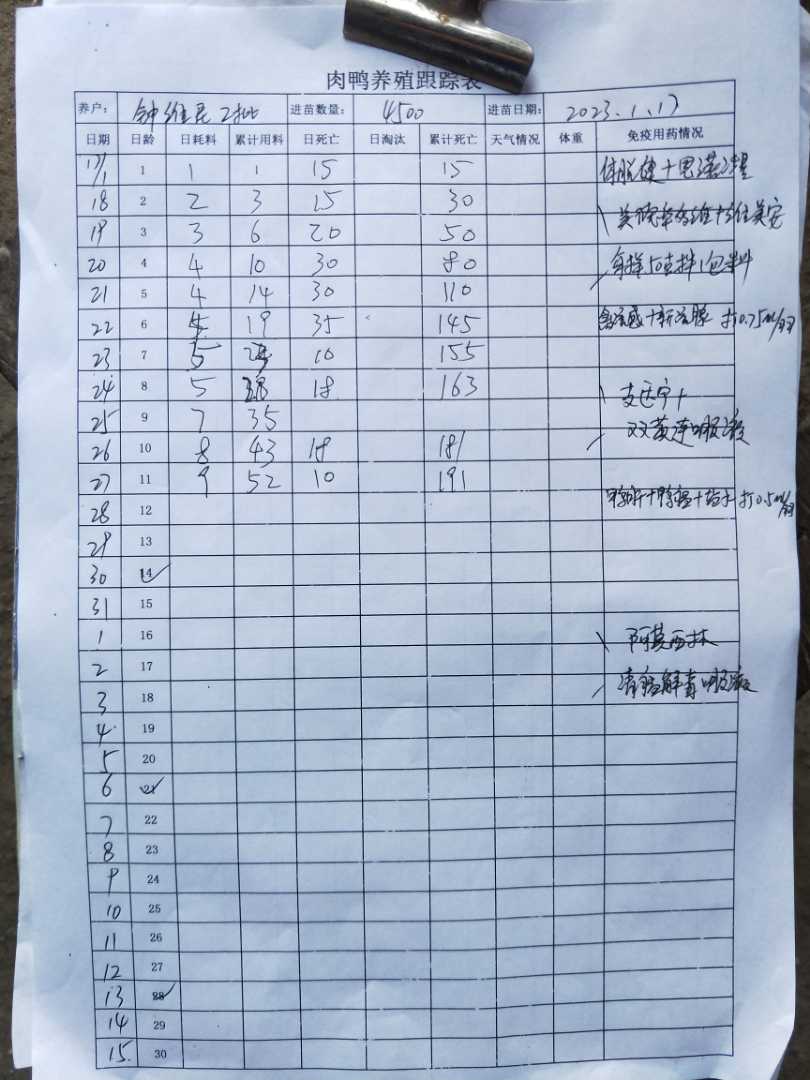 肉鸭养殖跟踪表
养户： 钟维 2批 进苗数量： 4500 进苗日期： 2023.1.17
日期 日龄 日耗料 累计用料 日死亡 日淘汰 累计死亡 天气情况 体重 免疫用药情况
17/1 1 1 1 15 15
18 2 2 3 15 30
19 3 3 6 20 50
20 4 4 10 30 80
21 5 4 14 30 110
22 6 5 19 35 145 打0.75ml/羽
23 7 5 10 155
24 8 5 18 163
25 9 7 35 双黄连口服液
26 10 8 43 18 181
27 11 9 52 10 191
28 12 打0.5ml/羽
29 13
30 14
31 15
1 16 阿莫西林
2 17
3 18 清瘟解毒口服液
4 19
5 20
6 21
7 22
8 23
9 24
10 25
11 26
12 27
13 28
14 29
15. 30